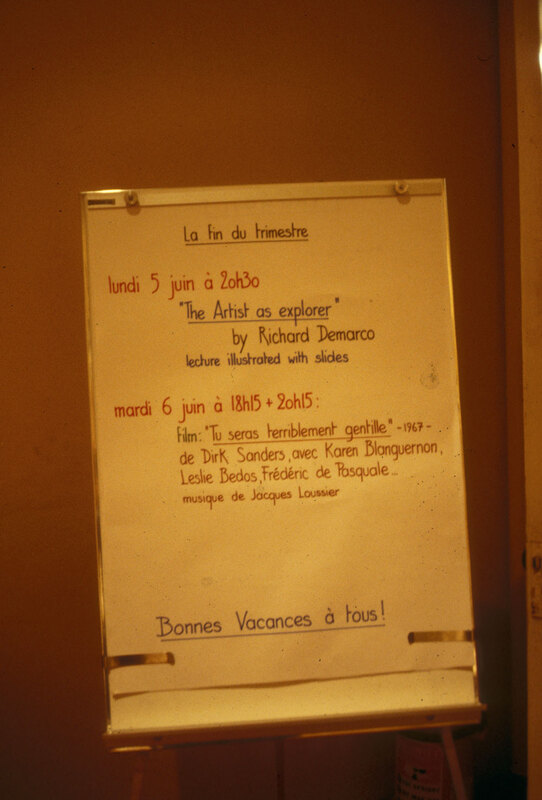 La fin du trimestre
lundi 5 juin à 20h30
"The Artist as explorer"
by Richard Demarco
lecture illustrated with slides
mardi 6 juin à 18h15 + 20h15:
Film: "Tu seras terriblement gentille" -1967-
de Dirk Sanders, avec Karen Blanguernon,
Leslie Bedos, Frédéric de Pasquale...
musique de Jacques Loussier
Bonnes Vacances à tous!